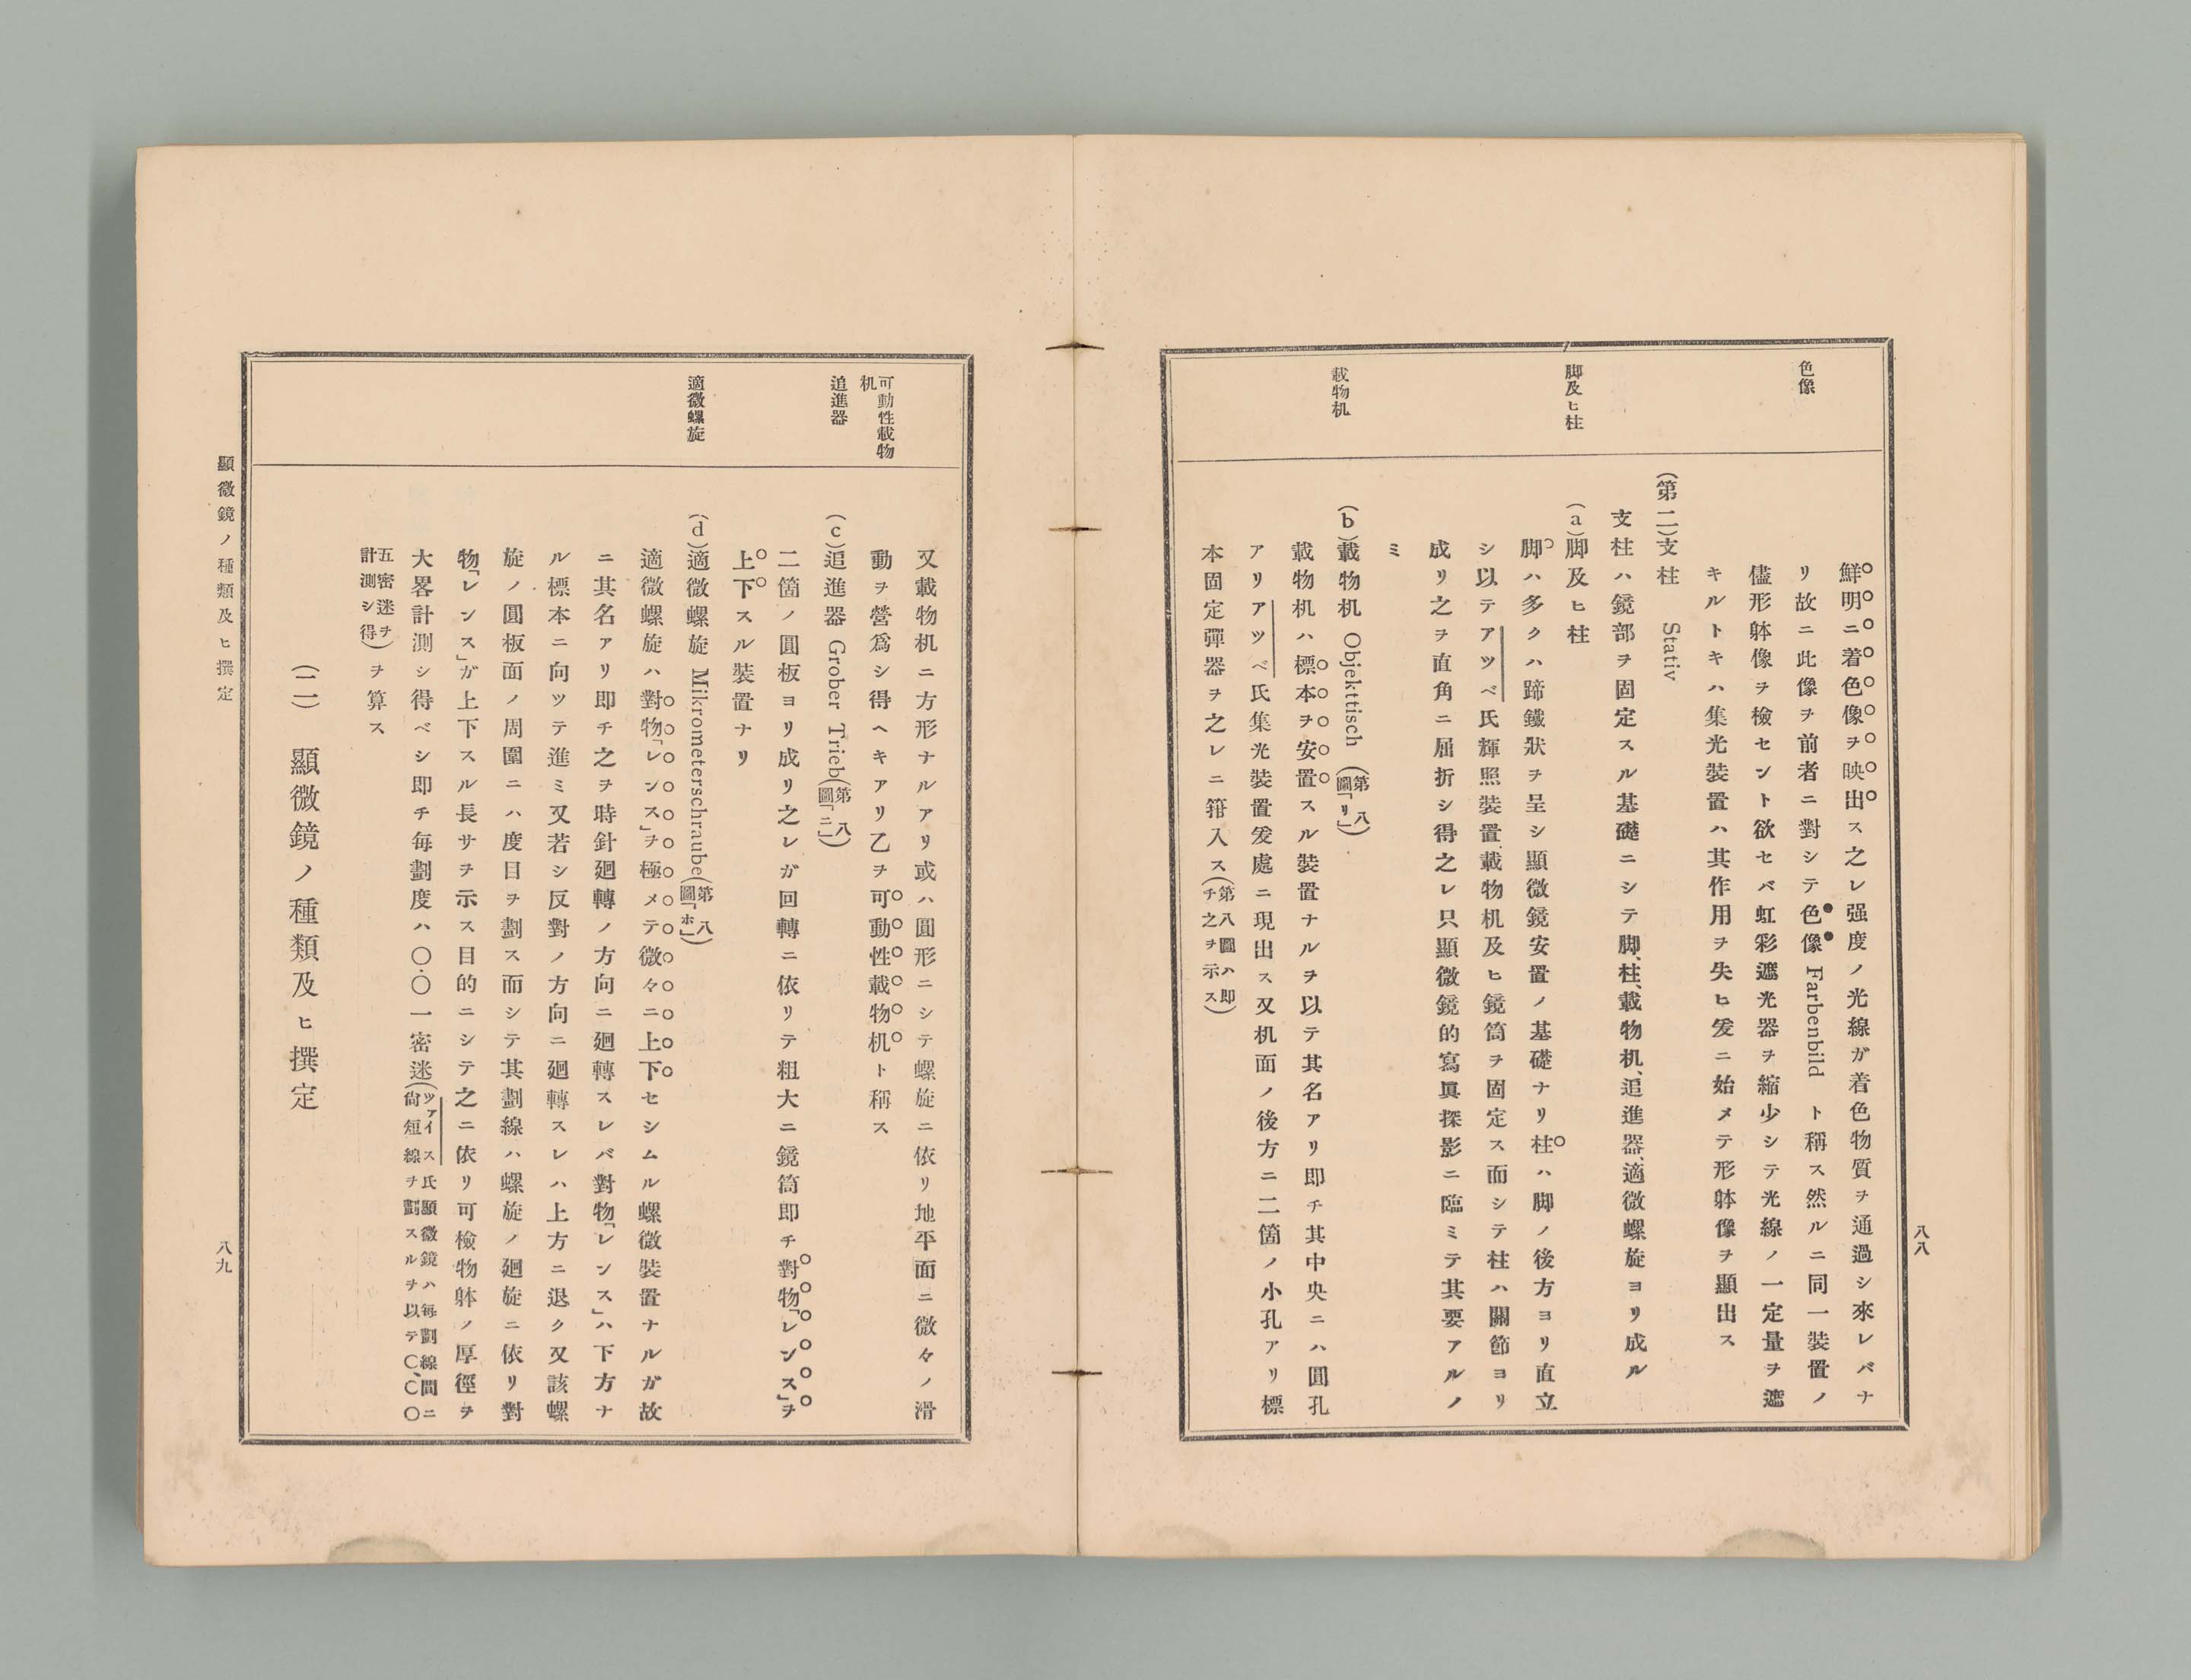 八八
色像
脚及ヒ柱
載物机
鮮明ニ着色像ヲ映出ス之レ强度ノ光線ガ着色物質ヲ通過シ來レバナ
リ故ニ此像ヲ前者ニ對シテ色像 Farbenbild ト稱ス然ルニ同一裝置ノ
儘形躰像ヲ檢セント欲セバ虹彩遮光器ヲ縮少シテ光線ノ一定量ヲ遮
キルトキハ集光裝置ハ其作用ヲ失ヒ爰ニ始メテ形躰像ヲ顯出ス
(第二)支柱 Stativ
支柱ハ鏡部ヲ固定スル基礎ニシテ脚、柱、載物机、追進器、適微螺旋ヨリ成ル
(a)脚及ヒ柱
脚ハ多クハ蹄鐵狀ヲ呈シ顯微鏡安置ノ基礎ナリ柱ハ脚ノ後方ヨリ直立
シ以テアツベ氏輝照裝置、載物机及ヒ鏡筒ヲ固定ス而シテ柱ハ關節ヨリ
成リ之ヲ直角ニ屈折シ得之レ只顯微鏡的寫眞探影ニ臨ミテ其要アルノ
ミ
(b)載物机 Objekttisch (第八圖「リ」)
載物机ハ標本ヲ安置スル裝置ナルヲ以テ其名アリ即チ其中央ニハ圓孔
アリアツベ氏集光裝置爰處ニ現出ス又机面ノ後方ニ二箇ノ小孔アリ標
本固定彈器ヲ之レニ箝入ス(第八圖ハ即チ之ヲ示ス)
可動性載物机
追進器
適微螺旋
又載物机ニ方形ナルアリ或ハ圓形ニシテ螺旋ニ依リ地平面ニ微々ノ滑
動ヲ營爲シ得ヘキアリ乙ヲ可動性載物机ト稱ス
(c)追進器 Grober Trieb(第八圖「ニ」)
二箇ノ圓板ヨリ成リ之レガ回轉ニ依リテ粗大ニ鏡筒即チ對物「レンス」ヲ
上下スル裝置ナリ
(d)適微螺旋 Mikrometerschraube(第八圖「ホ」)
適微螺旋ハ對物「レンス」ヲ極メテ微々ニ上下セシムル螺微裝置ナルガ故
ニ其名アリ即チ之ヲ時針廻轉ノ方向ニ廻轉スレバ對物「レンス」ハ下方ナ
ル標本ニ向ツテ進ミ又若シ反對ノ方向ニ廻轉スレハ上方ニ退ク又該螺
旋ノ圓板面ノ周圍ニハ度目ヲ劃ス而シテ其劃線ハ螺旋ノ廻旋ニ依リ對
物「レンス」ガ上下スル長サヲ示ス目的ニシテ之ニ依リ可檢物躰ノ厚徑ヲ
大畧計測シ得ベシ即チ毎劃度ハ〇.〇一密迷(ツァイス氏顯微鏡ハ毎劃線間ニ尙短線ヲ劃スルヲ以テ〇、〇〇
五密迷ヲ計測シ得)ヲ算ス
(二) 顯微鏡ノ種類及ヒ撰定
顯微鏡ノ種類及ヒ撰定
八九